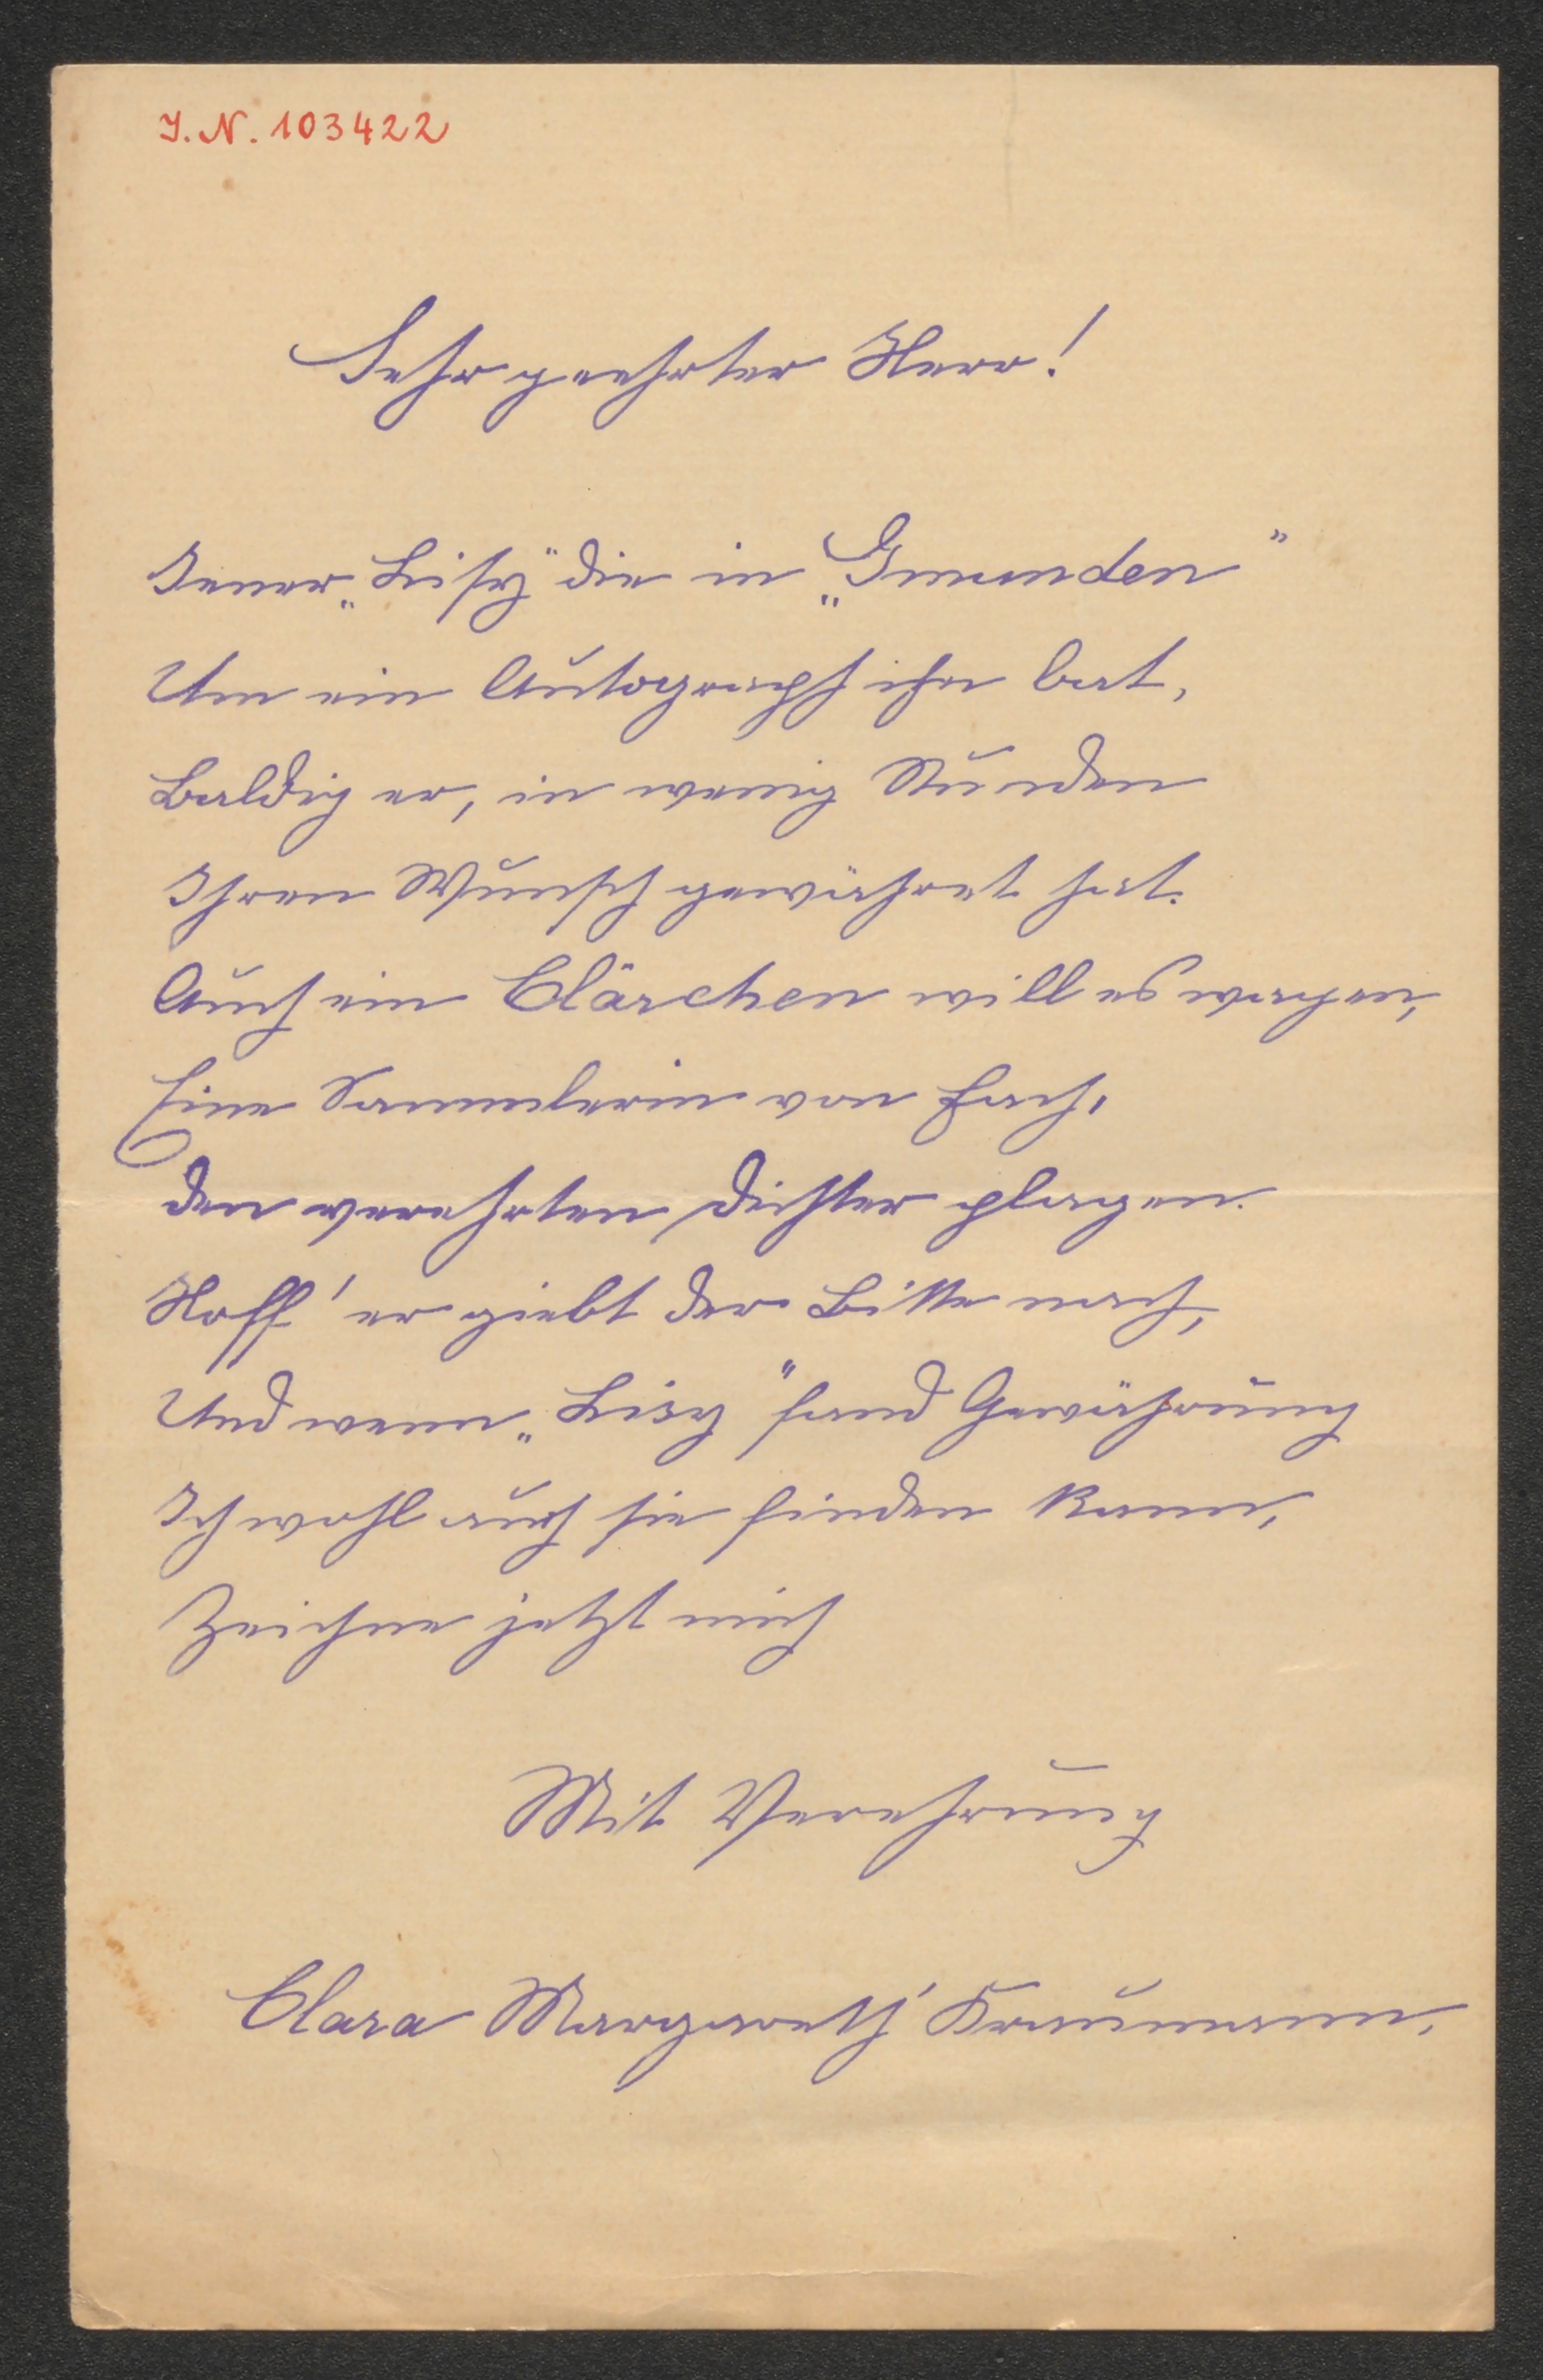 I. N. 103422
Sehr geehrter Herr!
Jener „Lisy" die in „Gmunden"
Um ein Autograph ihn bat,
Baldig er, in wenig Stunden
Ihren Wunsch gewähret hat.
Auch ein Clärchen will es wagen,
Eine Sammlerin von Fach,
Den verehrten Dichter plagen.
Hoff' er giebt der Bitte nach,
Und wenn „Lisy" fand Gewährung
Ich wohl auch sie finden kann,
Zeichne jetzt mich
Mit Verehrung
Clara Margareth Kraumann.